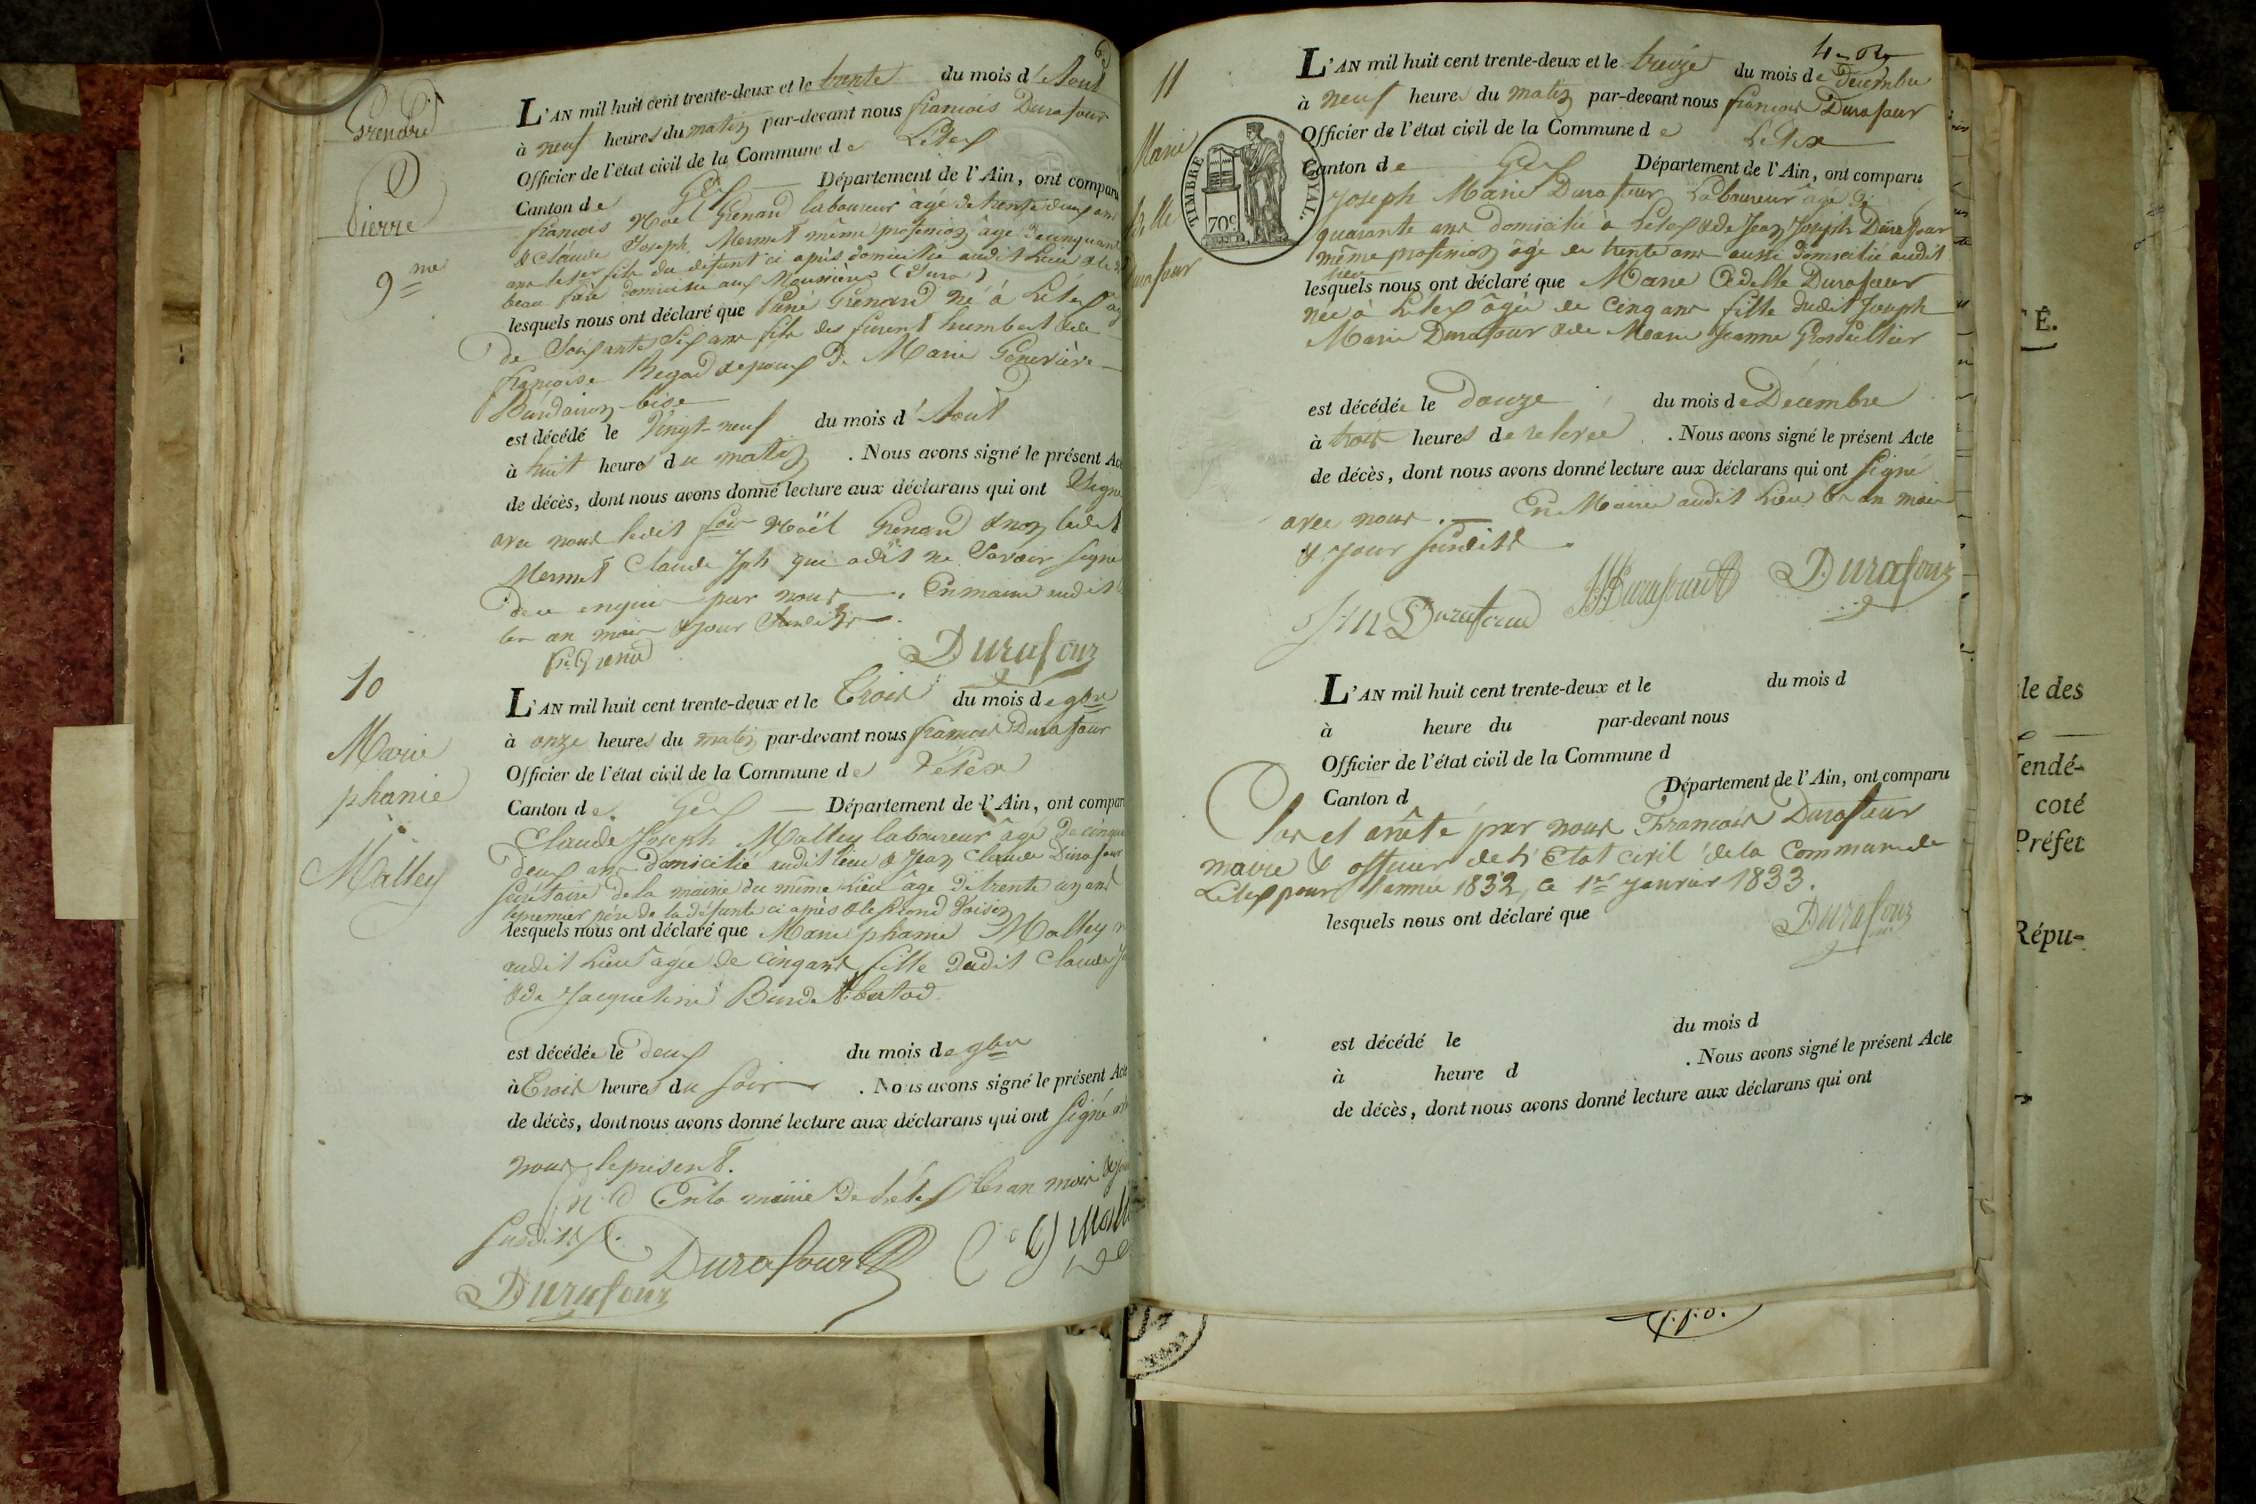 6
Grenard
Pierre
9me
L'AN mil huit cent trente-deux et le trente du mois d'Aout
à neuf heures du matin par-devant nous françois Durafour
Officier de l'état civil de la Commune de Lélex
Canton de Gex Département de l'Ain, ont comparu
françois Noël Grenard laboureur âgé de trente deux ans
& Claude Joseph Mermet même profession âgé de cinquante
ans le 1er fils du défunt ci après domicilié audit lieu & le
beau frère domicilié aux Moussières (Jura)
lesquels nous ont déclaré que Grenard né à Lélex âgé
de soixante six ans fils des furent humbert & de
françoise Regad époux de Marie Genevière
bise
est décédé le Vingt-neuf du mois d'Aout
à huit heures du matin . Nous avons signé le présent Acte
de décès, dont nous avons donné lecture aux déclarans qui ont signé
avec nous ledit fois Noël Grenard & non ledit
Mermet Claude Jph qui a dit ne savoir signer
de ce enquis par nous . En mairie audit
les an mois & jour susdits
Durafour
10
Marie
phanie
Malley
L'AN mil huit cent trente-deux et le trois du mois de 9bre
à onze heures du matin par-devant nous françois Durafour
Officier de l'état civil de la Commune de Lélex
Canton de Gex Département de l'Ain, ont comparu
Claude Joseph Malley laboureur âgé de cinquante
deux ans domicilié audit lieu & Jean Claude Durafour
secrétaire de la mairie du même lieu âgé de trente un ans
le premier père de la défunte ci après & le second voisin
lesquels nous ont déclaré que Marie phanie Malley
audit lieu âgée de cinq ans fille dudit Claude
& de Jacqueline
est décédée le deux du mois de 9bre
à trois heures du soir . Nous avons signé le présent Acte
de décès, dont nous avons donné lecture aux déclarans qui ont signé
nous le présent.
En la mairie de Lélex les an mois &
susdits.
Durafour
Durafour
11
Marie
Adelle
Durafour
TIMBRE ROYAL.
70c
L'AN mil huit cent trente-deux et le treize du mois de Décembre
à neuf heures du matin par-devant nous françois Durafour
Officier de l'état civil de la Commune de Lélex
Canton de Gex Département de l'Ain, ont comparu
Joseph Marie Durafour Laboureur âgé de
quarante ans domicilié à Lélex & de Jean Joseph Durafour
même profession âgé de trente ans aussi domicilié audit
lieu
lesquels nous ont déclaré que Marie Adelle Durafour
née à Lélex âgée de cinq ans fille dudit Joseph
Marie Durafour & de Marie Jeanne
est décédée le douze du mois de Décembre
à trois heures de relevée . Nous avons signé le présent Acte
de décès, dont nous avons donné lecture aux déclarans qui ont signé
avec nous. En Mairie audit Lieu les an mois
& jour susdits.
Durafour
L'AN mil huit cent trente-deux et le du mois d
à heure du par-devant nous
Officier de l'état civil de la Commune d
Canton d Département de l'Ain, ont comparu
Clos et arrêté par nous François Durafour
maire & officier de l'Etat civil de la Commune de
Lélex pour l'année 1832, ce 1er janvier 1833.
lesquels nous ont déclaré que
Durafour
est décédé le du mois d
à heure d . Nous avons signé le présent Acte
de décès, dont nous avons donné lecture aux déclarans qui ont
É.
le des
endé-
coté
Préfet
Répu-